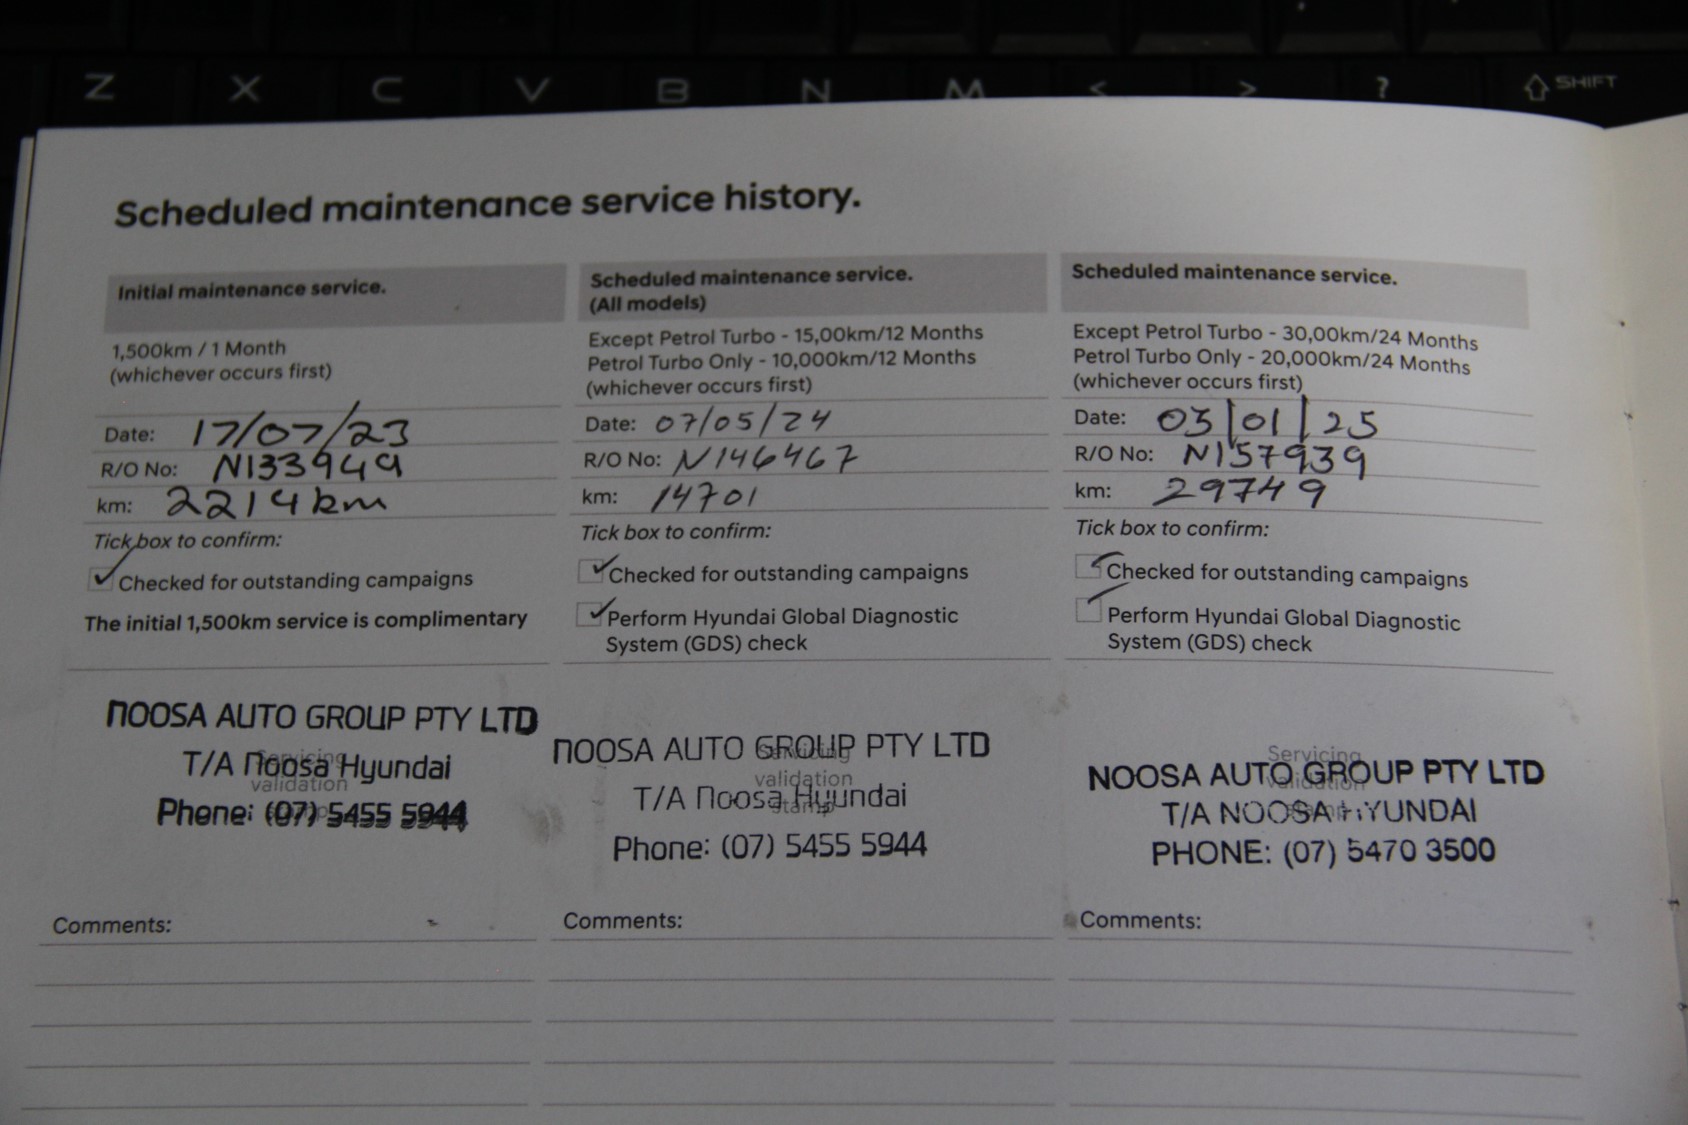 Z X C V B N M < > ? SHIFT
Scheduled maintenance service history.
Initial maintenance service.
1,500km / 1 Month
(whichever occurs first)
Date: 17/07/23
R/O No: N133949
km: 2214km
Tick box to confirm:
Checked for outstanding campaigns
The initial 1,500km service is complimentary
NOOSA AUTO GROUP PTY LTD
T/A Noosa Hyundai
Phone: (07) 5455 5944
Servicing
validation
Comments:
Scheduled maintenance service.
(All models)
Except Petrol Turbo - 15,00km/12 Months
Petrol Turbo Only - 10,000km/12 Months
(whichever occurs first)
Date: 07/05/24
R/O No: N146467
km: 14701
Tick box to confirm:
Checked for outstanding campaigns
Perform Hyundai Global Diagnostic
System (GDS) check
NOOSA AUTO GROUP PTY LTD
T/A Noosa Hyundai
Phone: (07) 5455 5944
Servicing
validation
stamp
Comments:
Scheduled maintenance service.
Except Petrol Turbo - 30,00km/24 Months
Petrol Turbo Only - 20,000km/24 Months
(whichever occurs first)
Date: 03/01/25
R/O No: N157939
km: 29749
Tick box to confirm:
Checked for outstanding campaigns
Perform Hyundai Global Diagnostic
System (GDS) check
Servicing
validation
NOOSA AUTO GROUP PTY LTD
T/A NOOSA HYUNDAI
PHONE: (07) 5470 3500
Comments: